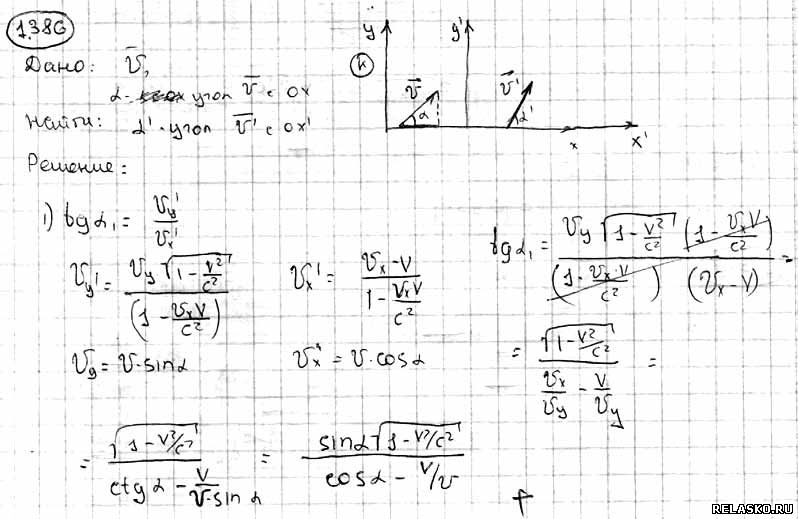 1.386
Дано: v̄,
α - угол v̄ с OX
Найти: α' - угол v̄' с OX'
Решение:
y y'
K
v̄ α v̄' α'
x x'
1) tgα₁ = v_y' / v_x'
v_y' = v_y √(1 - V²/c²) / (1 - v_x V/c²)
v_x' = (v_x - V) / (1 - v_x V/c²)
v_y = v·sinα
v_x = v·cosα
tgα₁ = v_y √(1 - V²/c²) (1 - v_x V/c²) / ((1 - v_x·V/c²) (v_x - V)) =
= √(1 - V²/c²) / (v_x/v_y - V/v_y) =
= √(1 - V²/c²) / (ctgα - V/(v·sinα)) = sinα √(1 - V²/c²) / (cosα - V/v)
RELASKO.RU